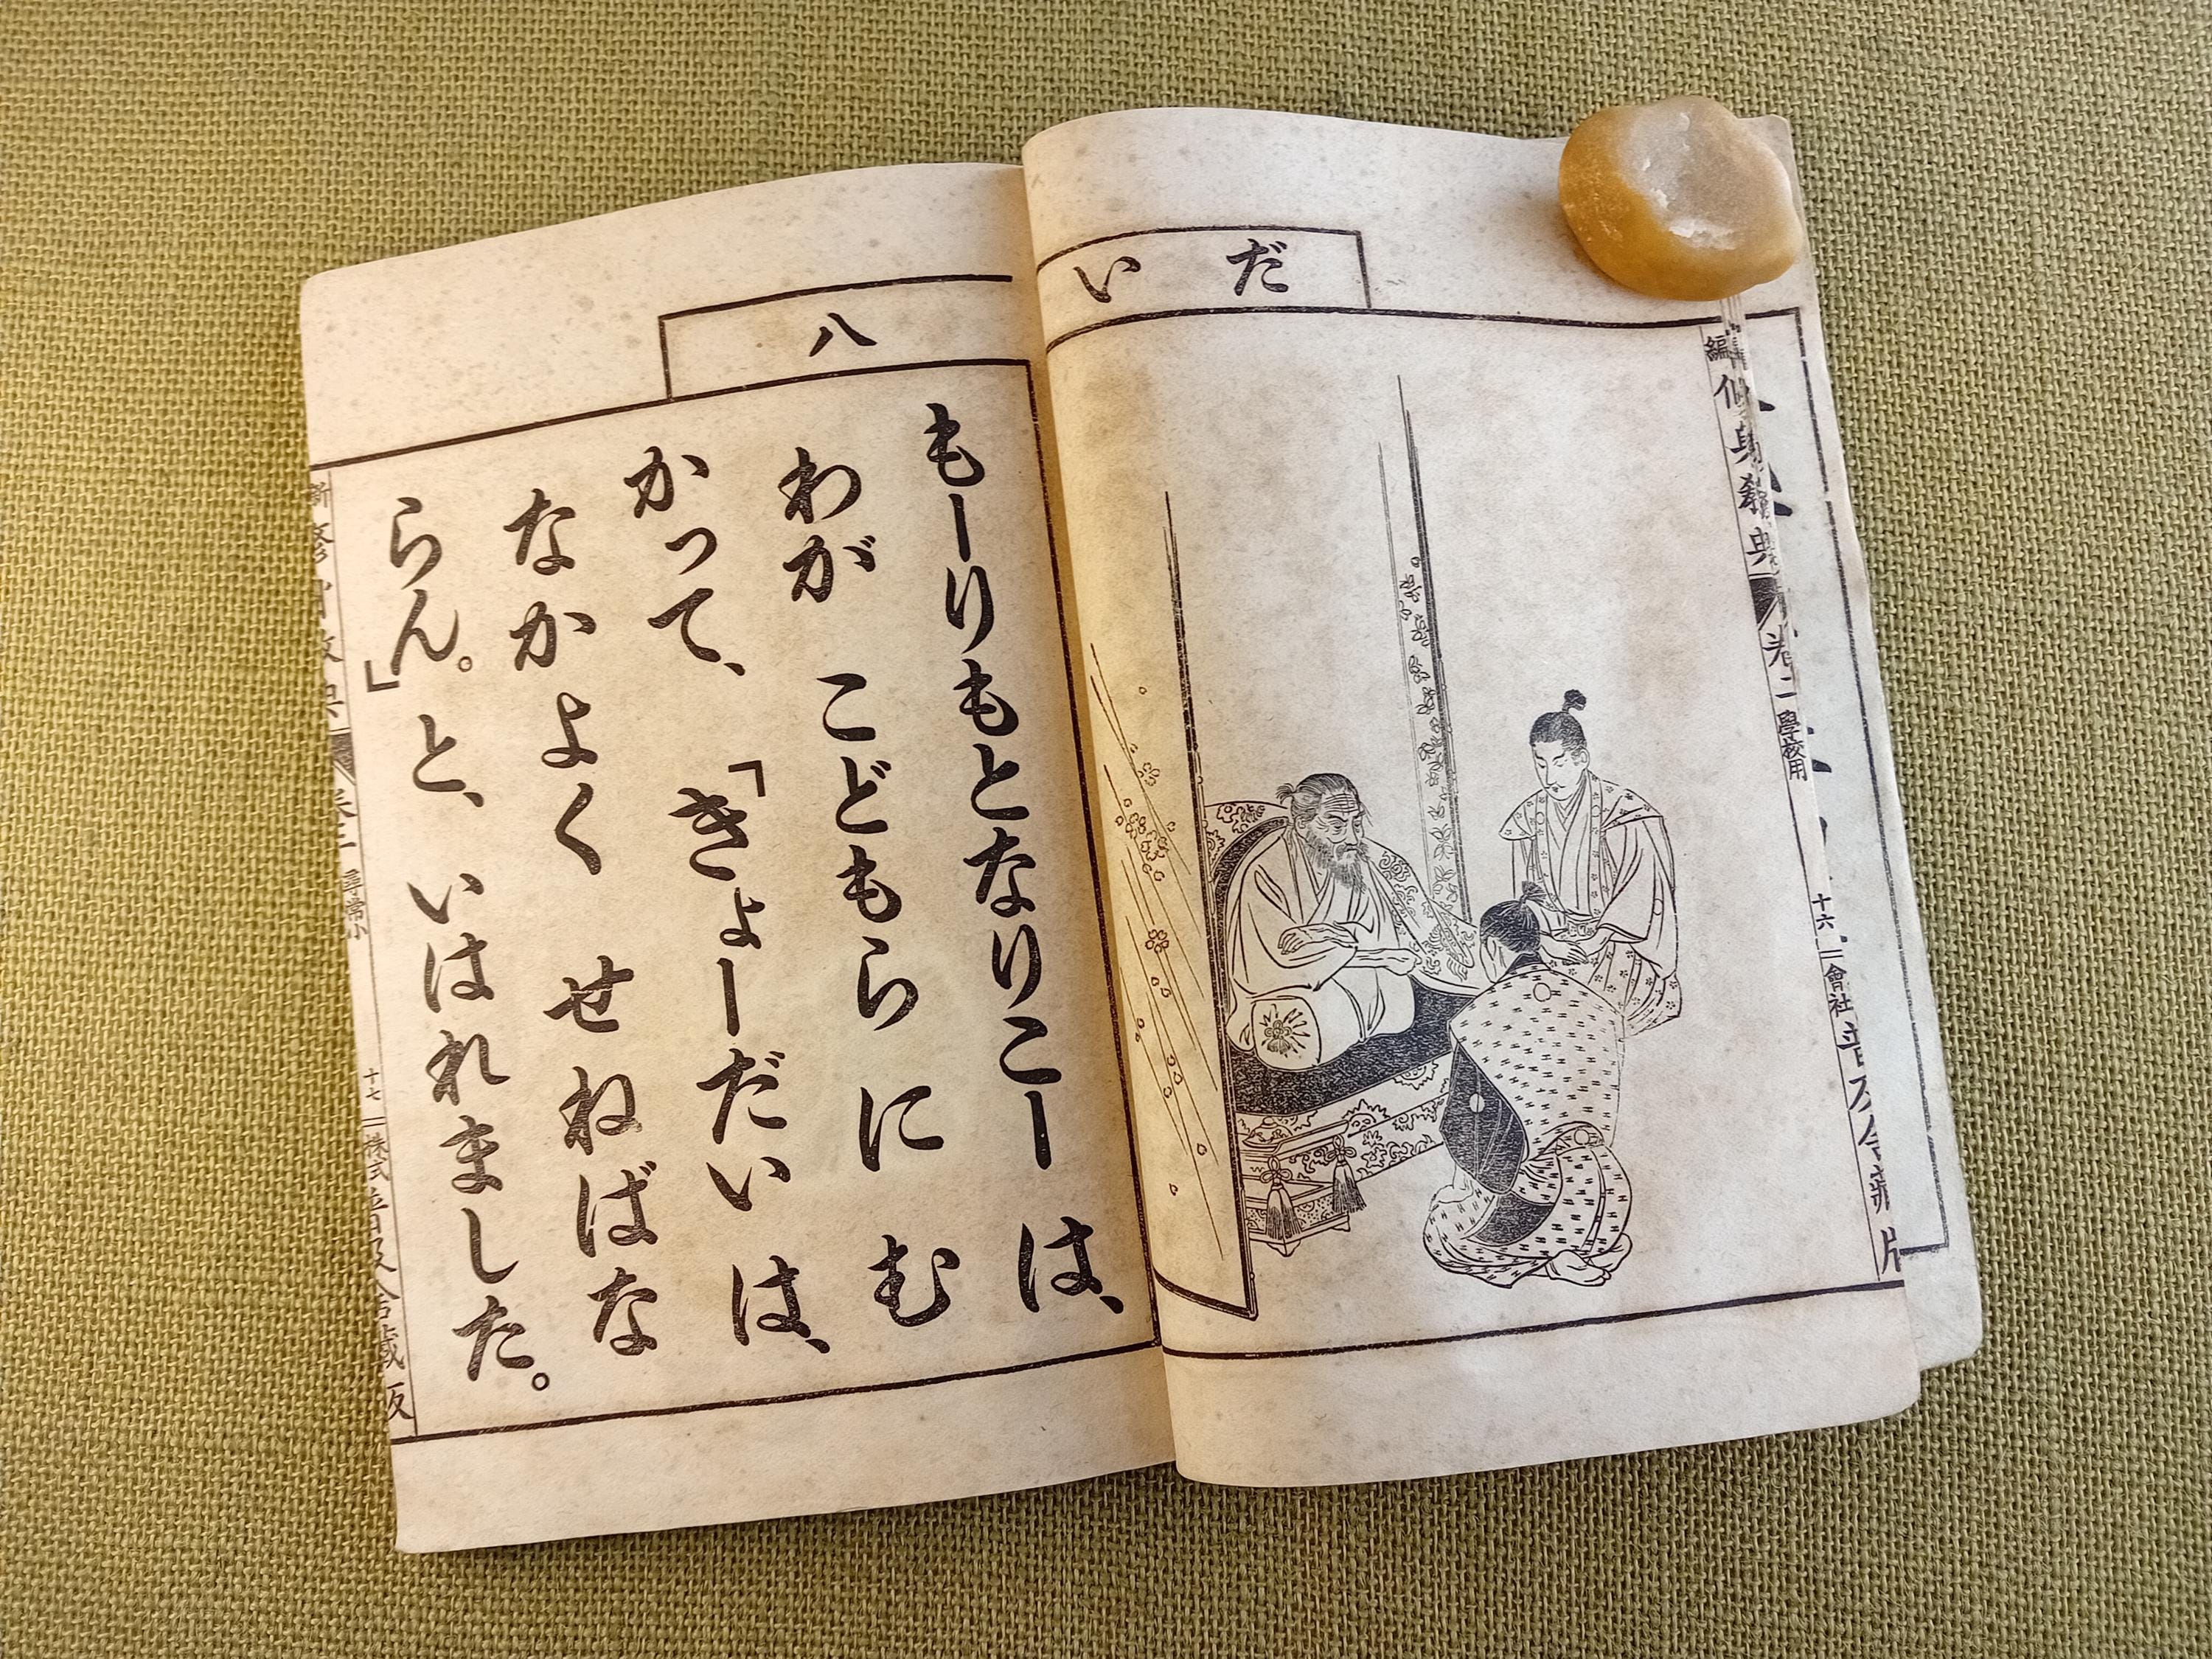 だい
八
もーりもとなりこーは、
わが こどもらに む
かって、「きょーだいは、
なかよく せねばな
らん。」と、いはれました。
修身教典
卷二
學校用
十六
會社
尋常小
十七
株式